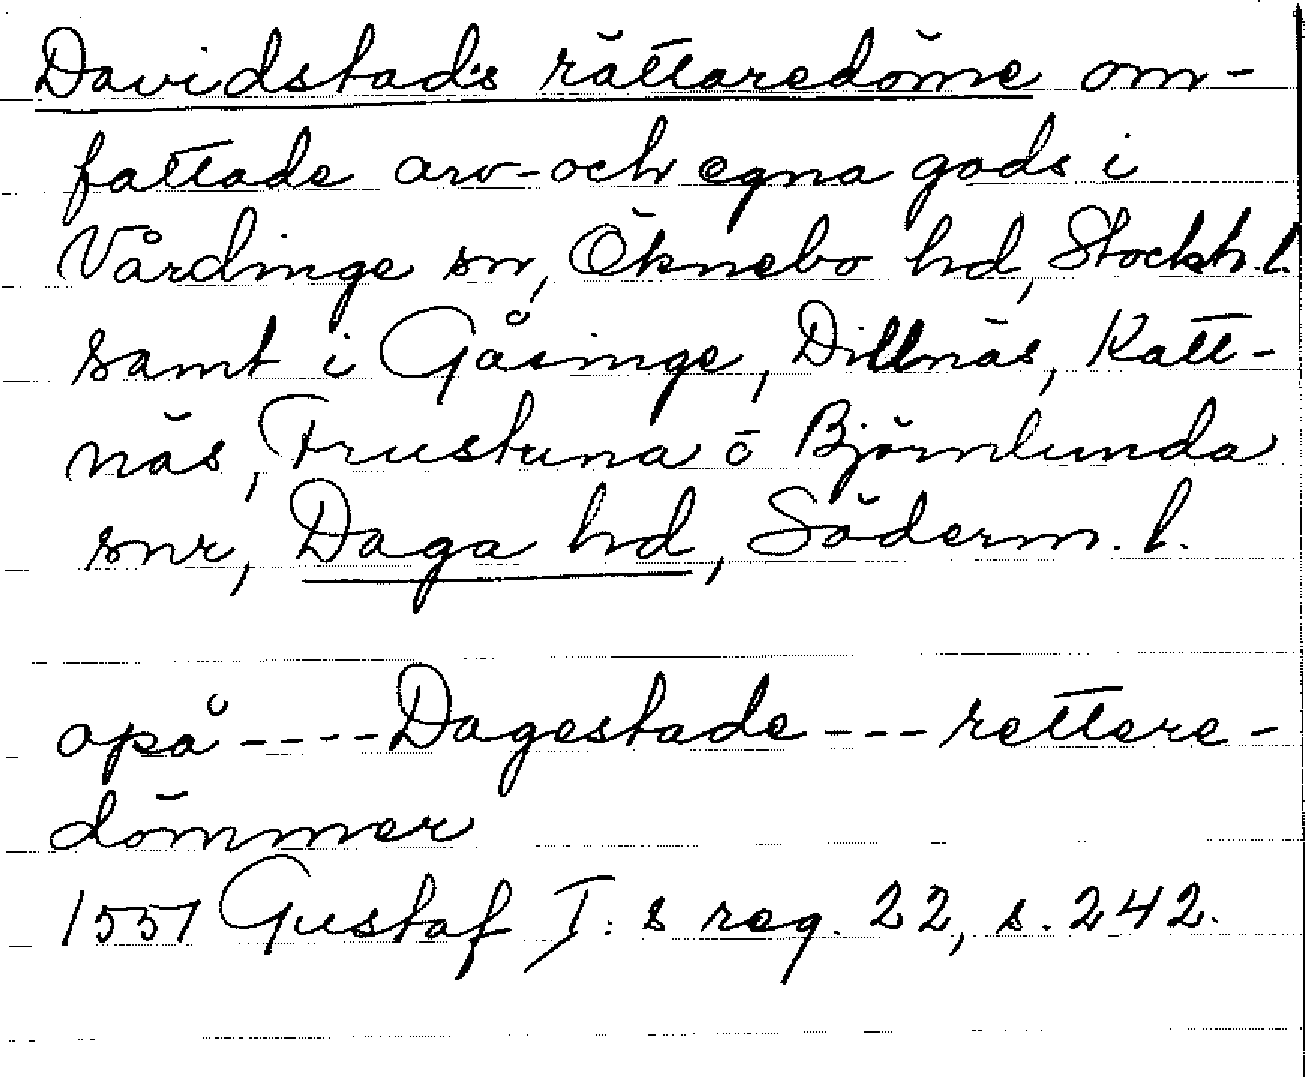 Davidstads rättaredöme om-
fattade arv- och egna gods i
Vårdinge sn, Öknebo hd, Stockh. l.
samt i Gåsinge, Dillnäs, Katt-
näs, Frustuna o Björnlunda
snr, Daga hd, Söderm. l.
opå ---- Dagestade --- rettere-
dömmer
1557 Gustaf I: s reg. 22, s. 242.